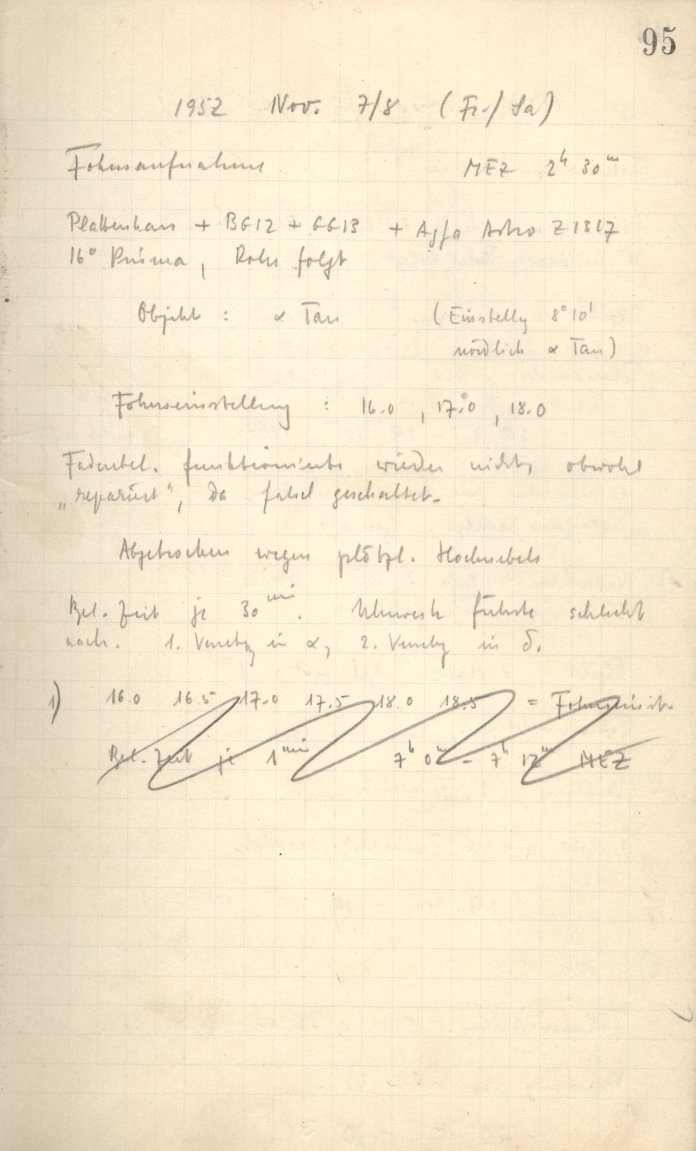 95
1952 Nov. 7/8 (Fr./Sa)
Fokusaufnahme MEZ 2h 30m
Plattenhaus + BG12 + GG13 + Agfa Astro Z 1317
16° Prisma, Rohr folgt
Objekt : α Tau (Einstellg 8° 10'
nördlich α Tau)
Fokuseinstellung : 16.0 , 17.0 , 18.0
Fadenbel. funktionierte wieder nicht, obwohl
„repariert", da falsch geschaltet.
Abgebrochen wegen plötzl. Hochnebels
Bel.-Zeit je 30 min. Uhrwerk führte schlecht
nach. 1. in α, 2. in δ.
1) 16.0 16.5 17.0 17.5 18.0 18.5 =
Bel.-Zeit je 1 min 7h 0m - 7h 12m MEZ